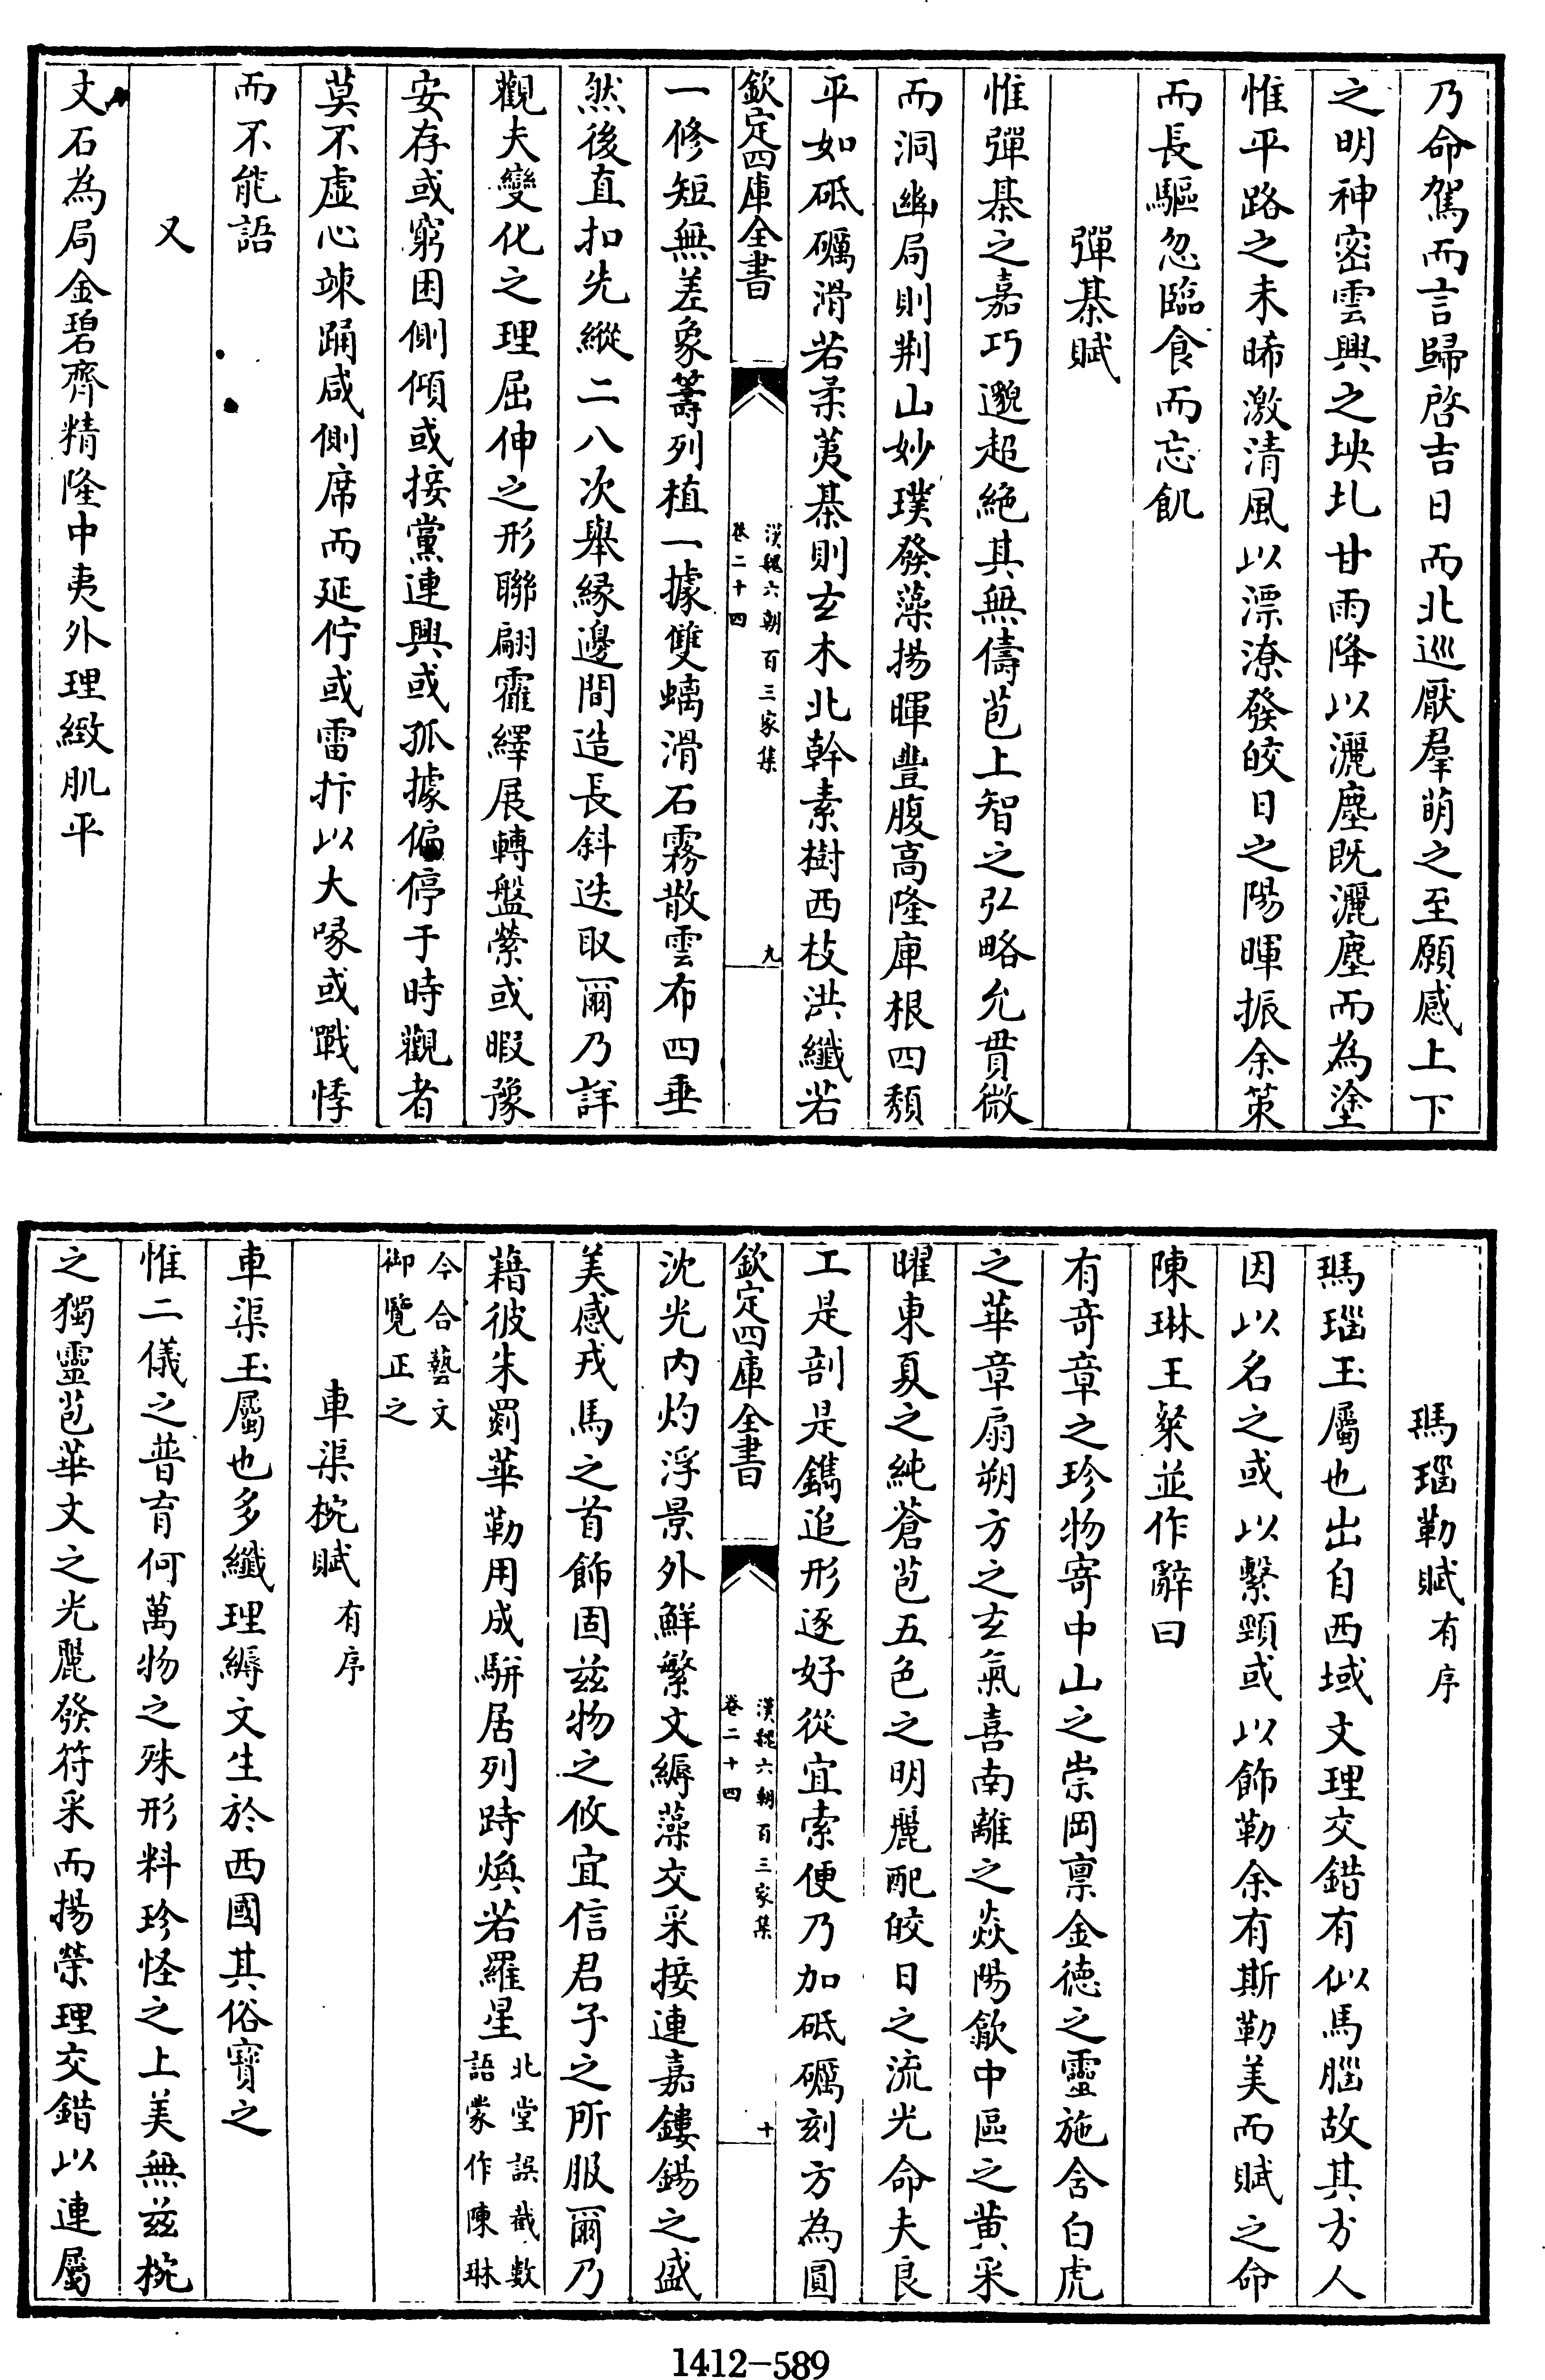 乃命駕而言歸啓吉日而北巡厭羣萌之至願感上下
之明神密雲興之坱圠甘雨降以灑塵既灑塵而為塗
惟平路之未晞激清風以漂潦發皎日之陽暉振余策
而長驅忽臨食而忘飢
彈棊賦
惟彈棊之嘉巧邈超絶其無儔苞上智之弘略允貫微
而洞幽局則荆山妙璞發藻揚暉豐腹高隆庳根四頽
平如砥礪滑若柔荑棊則玄木北幹素樹西枝洪纖若
欽定四庫全書
漢魏六朝百三家集
卷二十四
九
一修短無差象籌列植一據雙螭滑石霧散雲布四垂
然後直扣先縱二八次舉緣邊間造長斜迭取爾乃詳
觀夫變化之理屈伸之形聯翩霍繹展轉盤縈或暇豫
安存或窮困側傾或接黨連興或孤據偏停于時觀者
莫不虛心竦踊咸側席而延佇或雷抃以大喙或戰悸
而不能語
又
文石為局金碧齊精隆中夷外理緻肌平
瑪瑙勒賦有序
瑪瑙玉屬也出自西域文理交錯有似馬腦故其方人
因以名之或以繫頸或以飾勒余有斯勒美而賦之命
陳琳王粲並作辭曰
有奇章之珍物寄中山之崇岡稟金德之靈施含白虎
之華章扇朔方之玄氣喜南離之焱陽歙中區之黄采
曜東夏之純蒼苞五色之明麗配皎日之流光命夫良
工是剖是鐫追形逐好從宜索便乃加砥礪刻方為圓
欽定四庫全書
漢魏六朝百三家集
卷二十四
十
沈光内灼浮景外鮮繁文縟藻交采接連嘉鏤鍚之盛
美感戎馬之首飾固兹物之攸宜信君子之所服爾乃
藉彼朱罽華勒用成駢居列跱煥若羅星北堂誤截數
語蒙作陳琳
今合藝文
御覽正之
車渠椀賦有序
車渠玉屬也多纖理縟文生於西國其俗寶之
惟二儀之普育何萬物之殊形料珍怪之上美無兹椀
之獨靈苞華文之光麗發符采而揚榮理交錯以連屬
1412-589